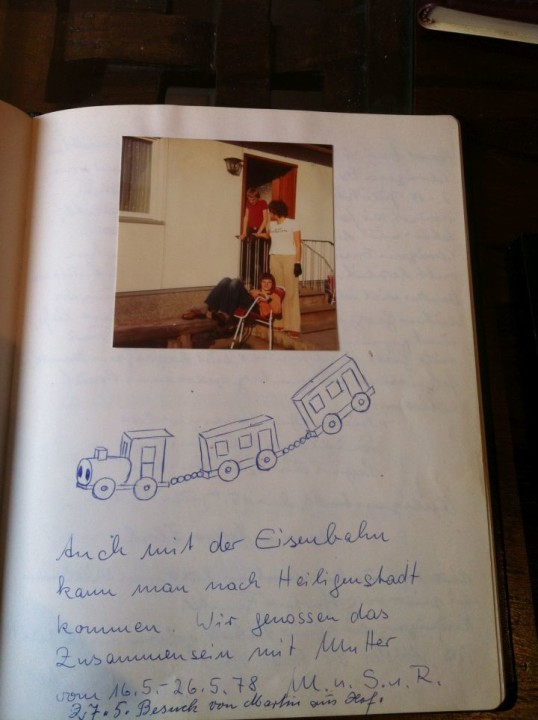 Auch mit der Eisenbahn
kann man nach Heiligenstadt
kommen. Wir genossen das
Zusammensein mit Mutter
vom 16.5.-26.5.78 M. u. S. u. R.
27.5. Besuch von Martin aus